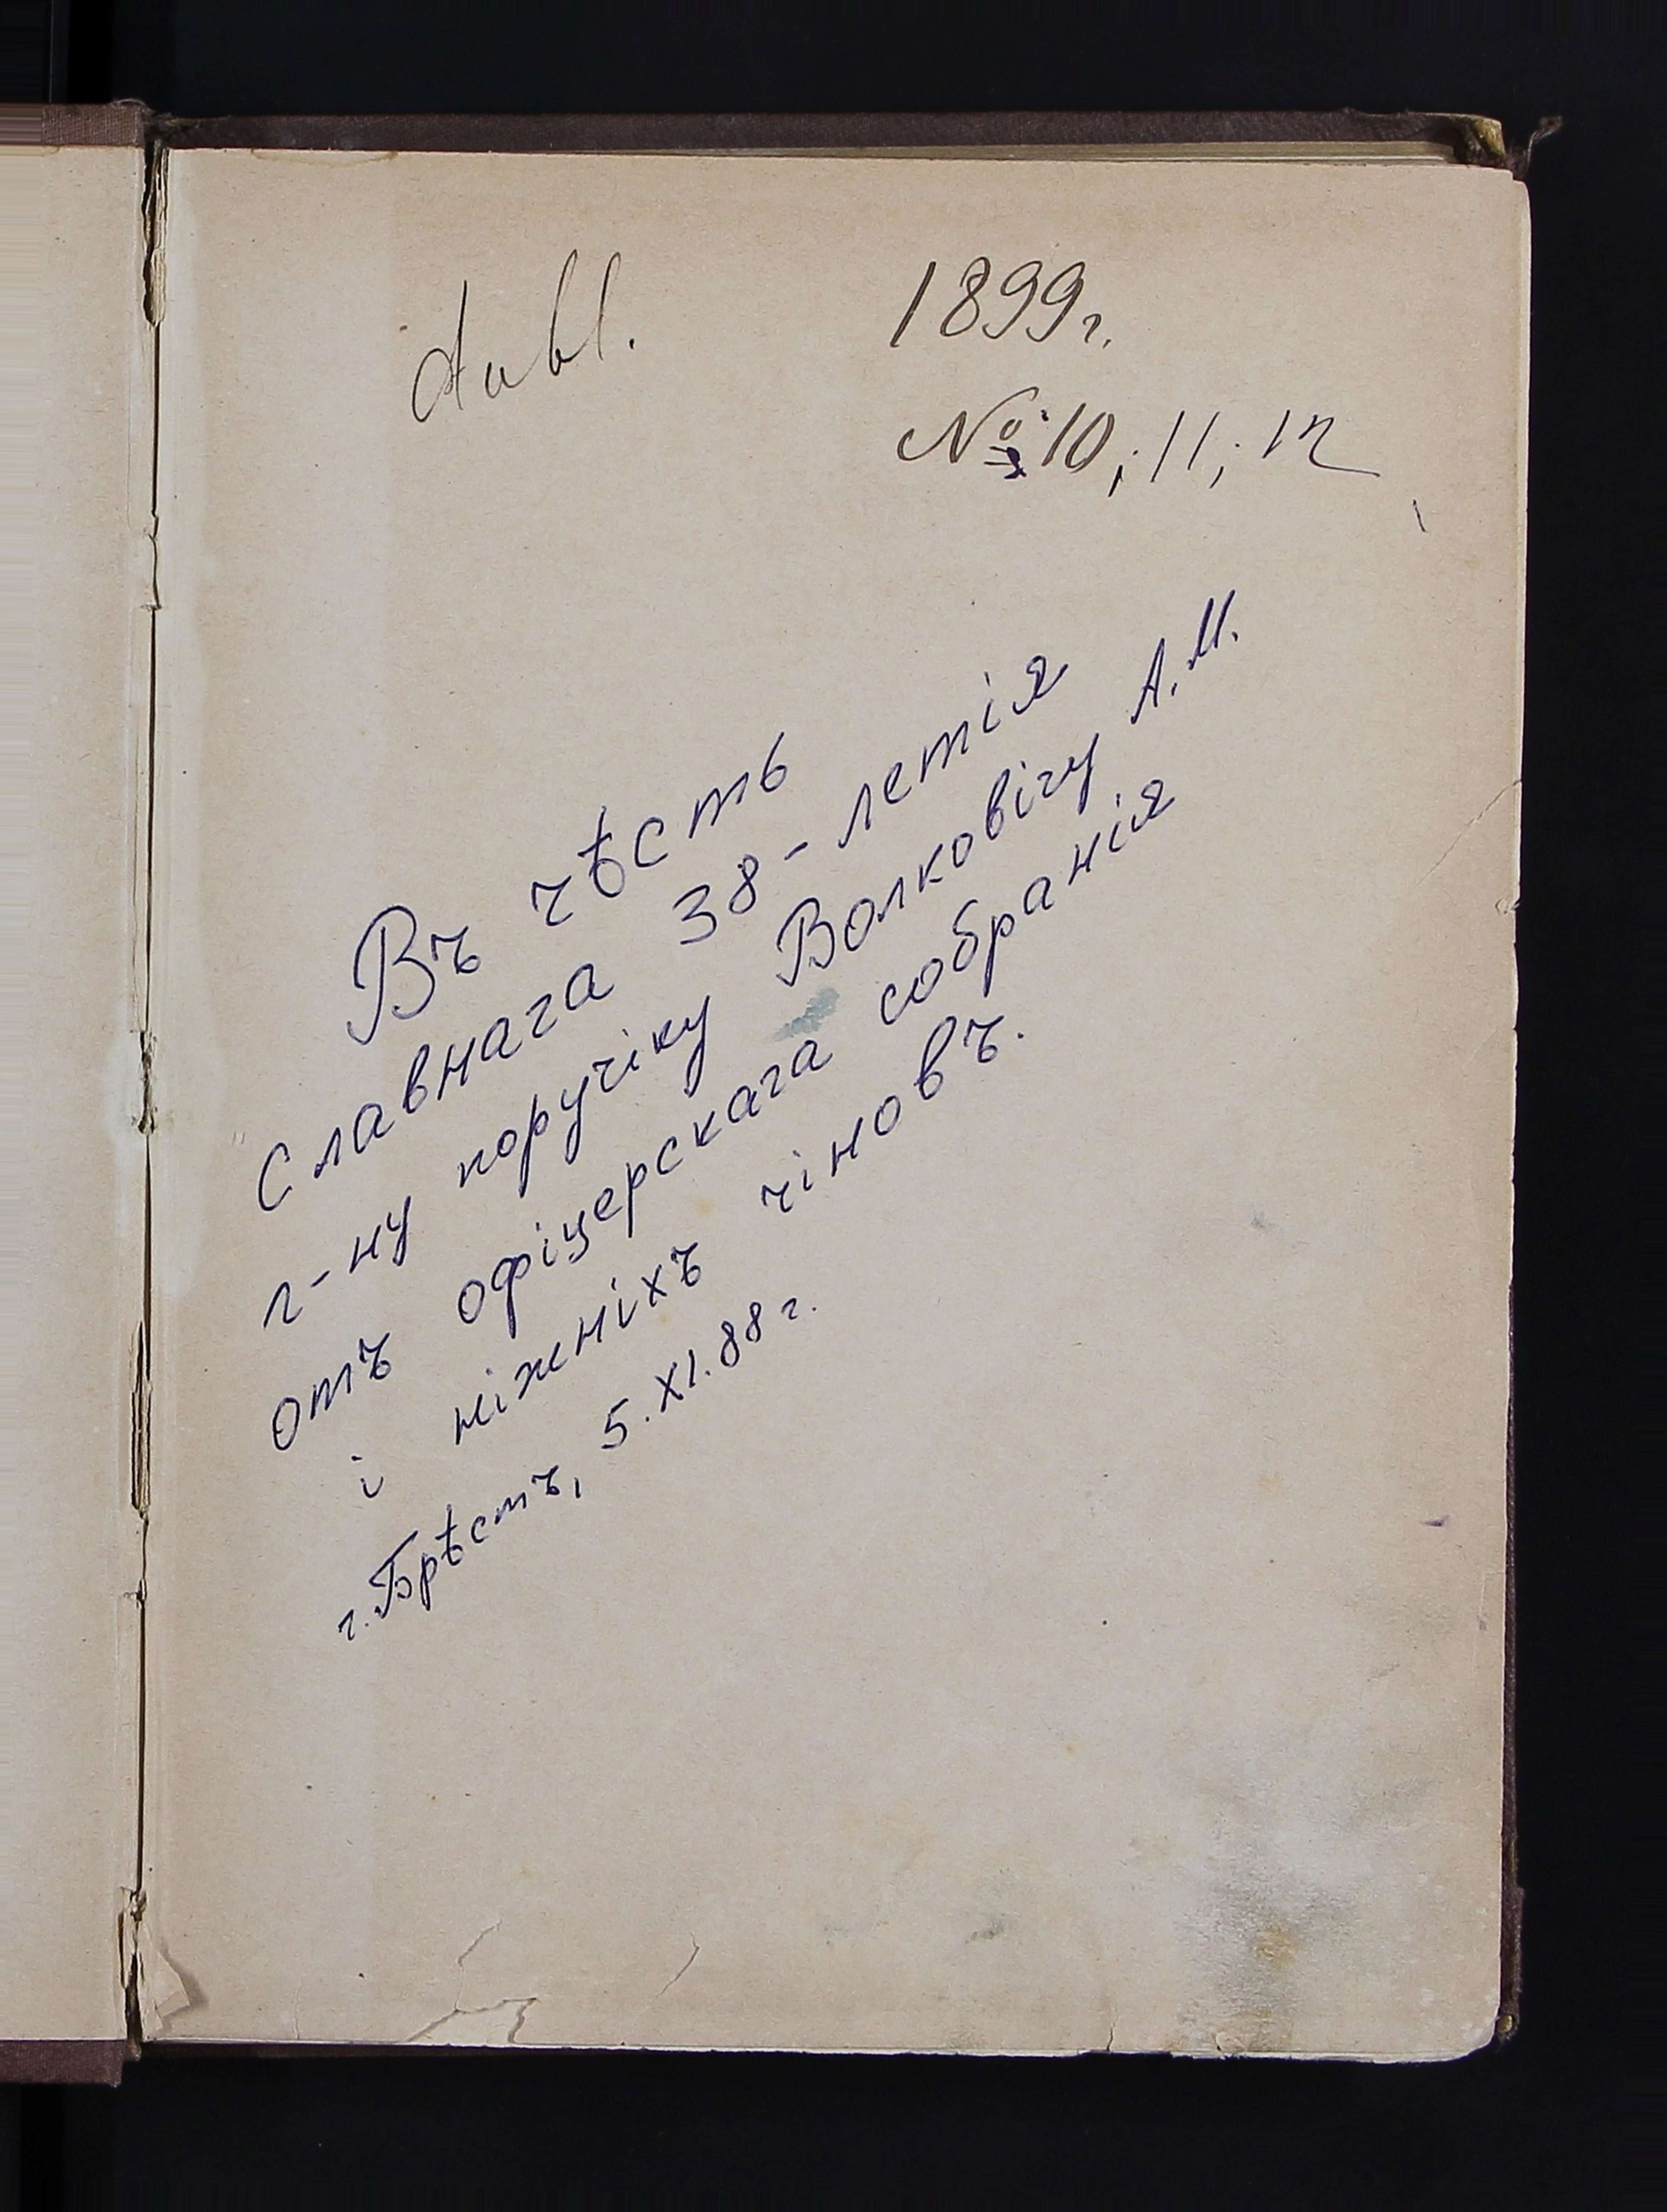 Dubl.
1899г.
№ 10, 11, 12
Въ чѣсть
Славнага 38-летія
г-ну поручіку Волковічу А.М.
отъ офіцерскага собранія
і ніжніхъ чіновъ.
г. Брѣстъ, 5.XI.88 г.